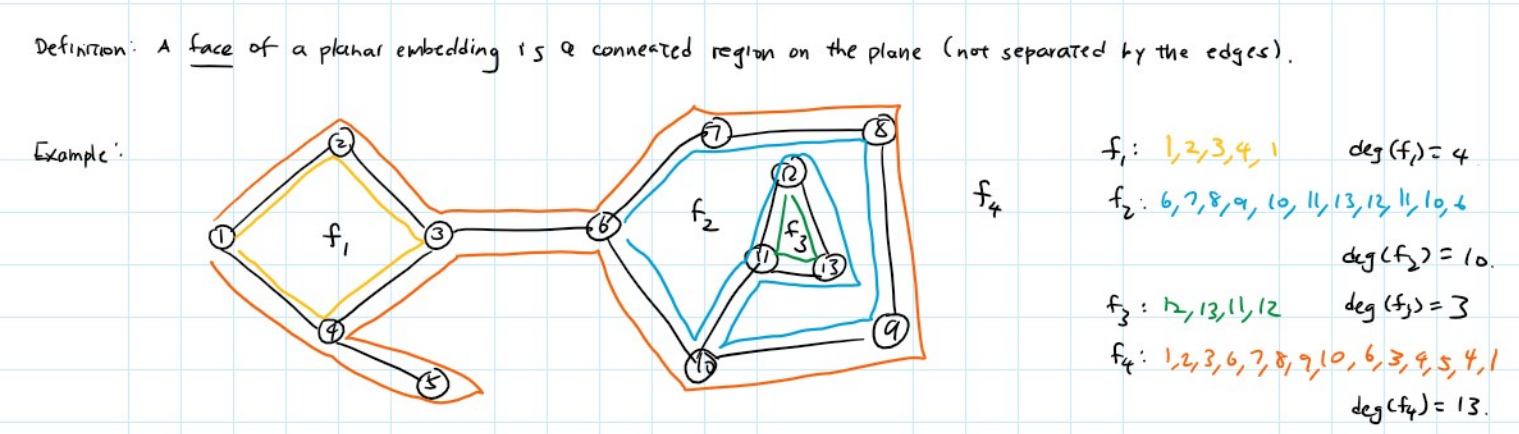 Definition: A face of a planar embedding is a connected region on the plane (not separated by the edges).
Example:
1
2
3
4
5
f₁
6
7
8
9
10
11
12
13
f₂
f₃
f₄
f₁: 1,2,3,4,1 deg(f₁)=4
f₂: 6,7,8,9,10,11,13,12,11,10,6
deg(f₂)=10.
f₃: 12,13,11,12 deg(f₃)=3
f₄: 1,2,3,6,7,8,9,10,6,3,4,5,4,1
deg(f₄)=13.